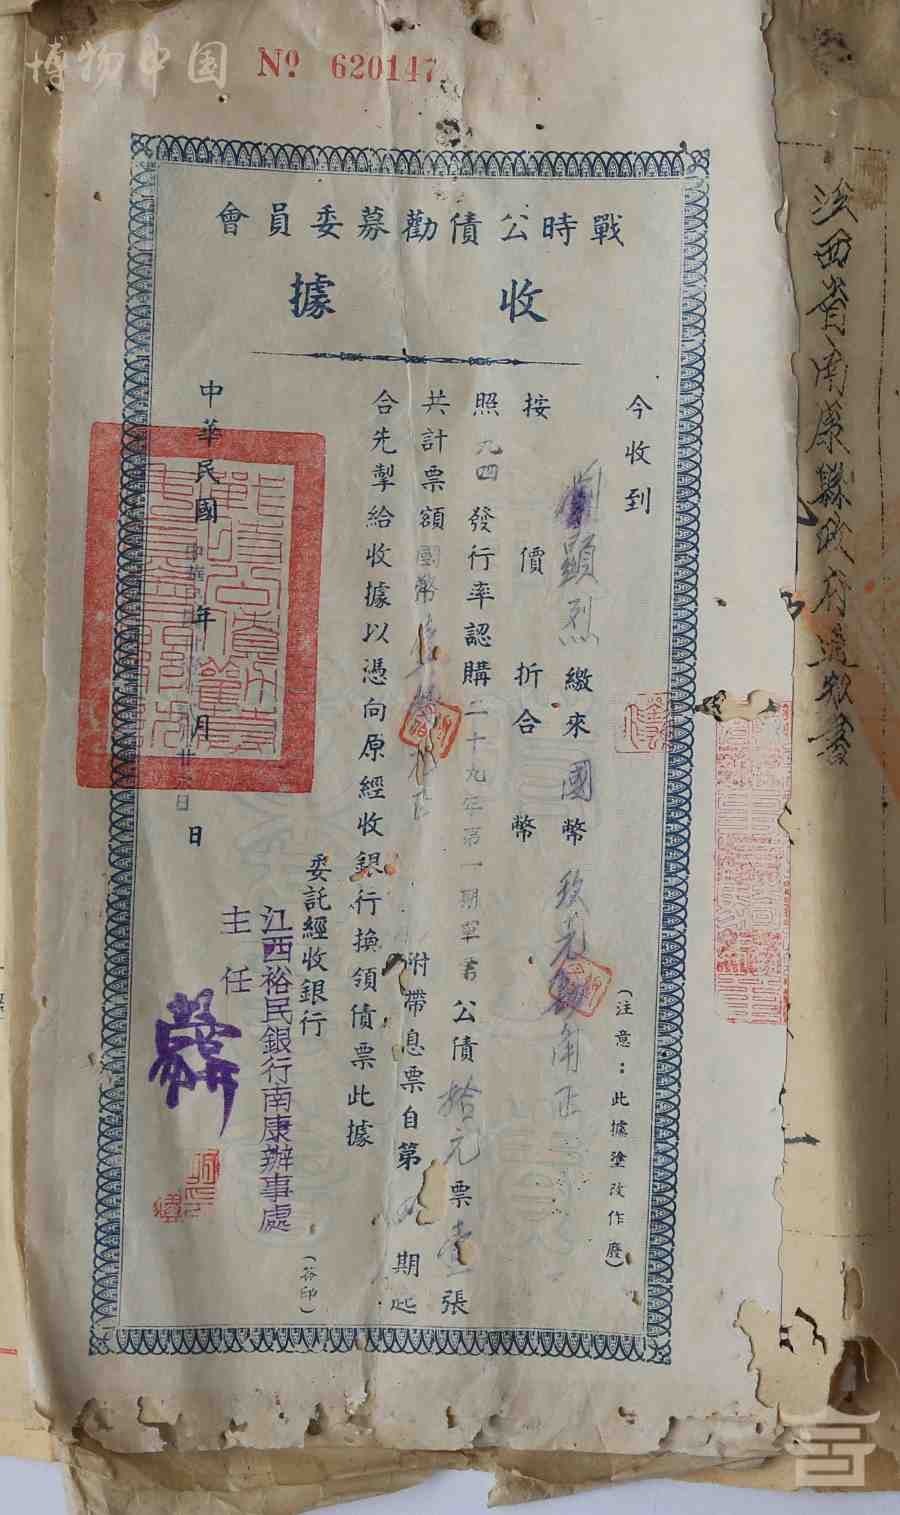 博物中国
№ 620147
戰時公債勸募委員會
收據
今收到
顯烈繳來國幣玖元肆角正
(注意:此據塗改作廢)
按價折合幣
照九四發行率認購二十九年第一期軍需公債拾元票壹張
共計票額國幣
附帶息票自第 期起
合先掣給收據以憑向原經收銀行換領債票此據
委託經收銀行
(簽印)
江西裕民銀行南康辦事處
主任
中華民國 年 月 日
戰時公債勸募
江西省南康縣政府通知書